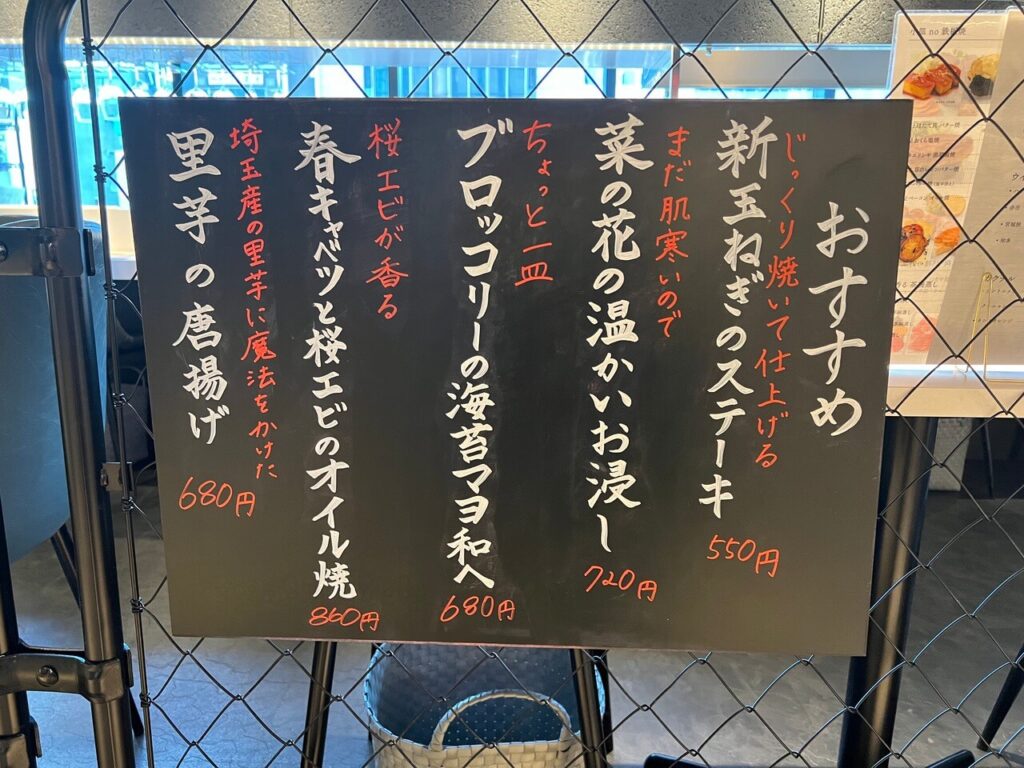 おすすめ
じっくり焼いて仕上げる
新玉ねぎのステーキ
550円
まだ肌寒いので
菜の花の温かいお浸し
720円
ちょっと一皿
ブロッコリーの海苔マヨ和へ
680円
桜エビが香る
春キャベツと桜エビのオイル焼
860円
埼玉産の里芋に魔法をかけた
里芋の唐揚げ
680円